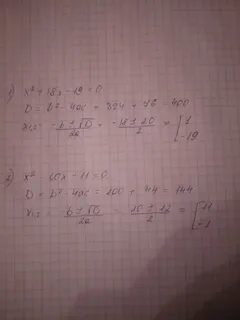 1) x² + 18x - 19 = 0
D = b² - 4ac = 324 + 76 = 400
x₁,₂ = -b ± √D / 2a = -18 ± 20 / 2 = [ 1
-19
2) x² - 10x - 11 = 0
D = b² - 4ac = 100 + 44 = 144
x₁,₂ = b ± √D / 2a = 10 ± 12 / 2 = [ 11
-1